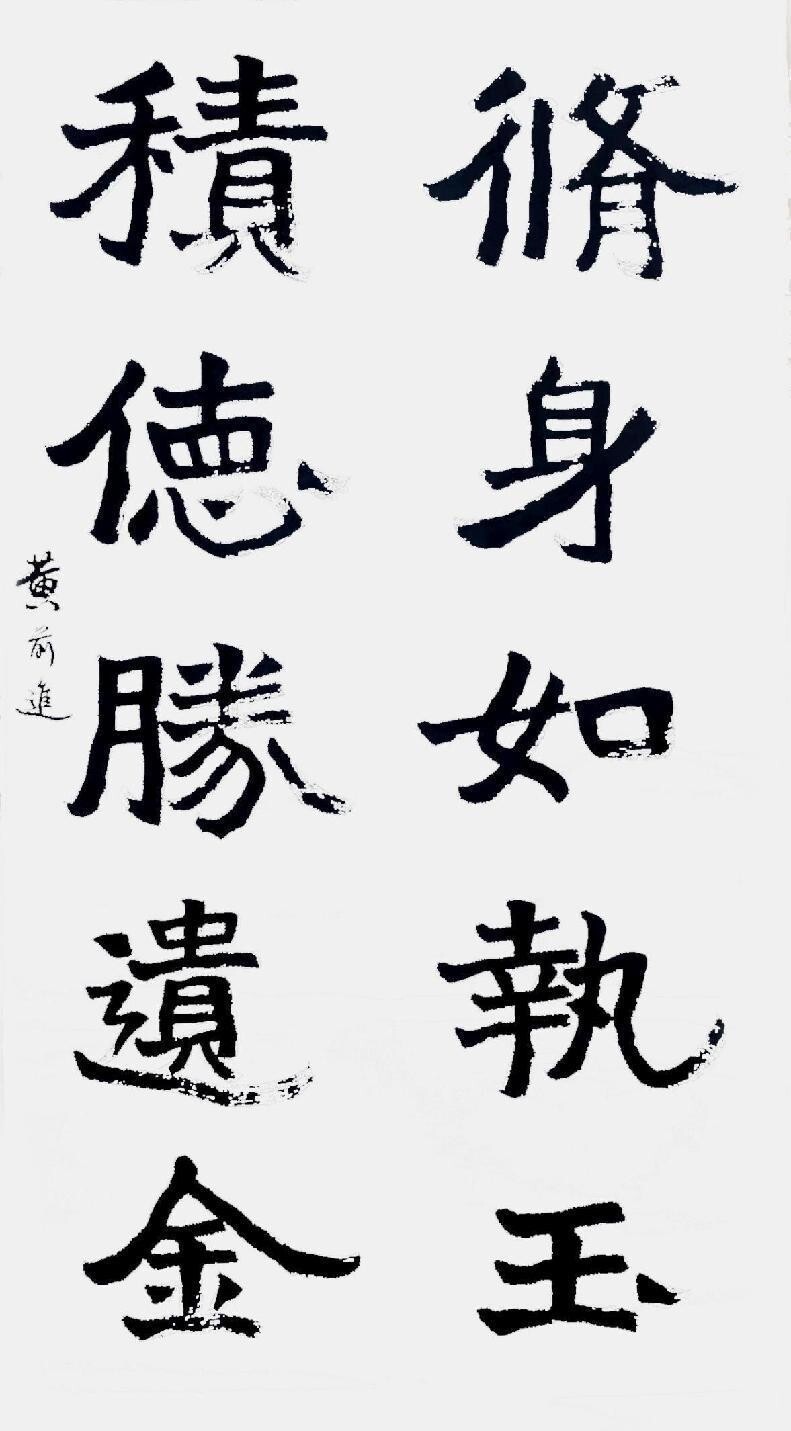 脩身如執玉
積徳勝遺金
黄前進